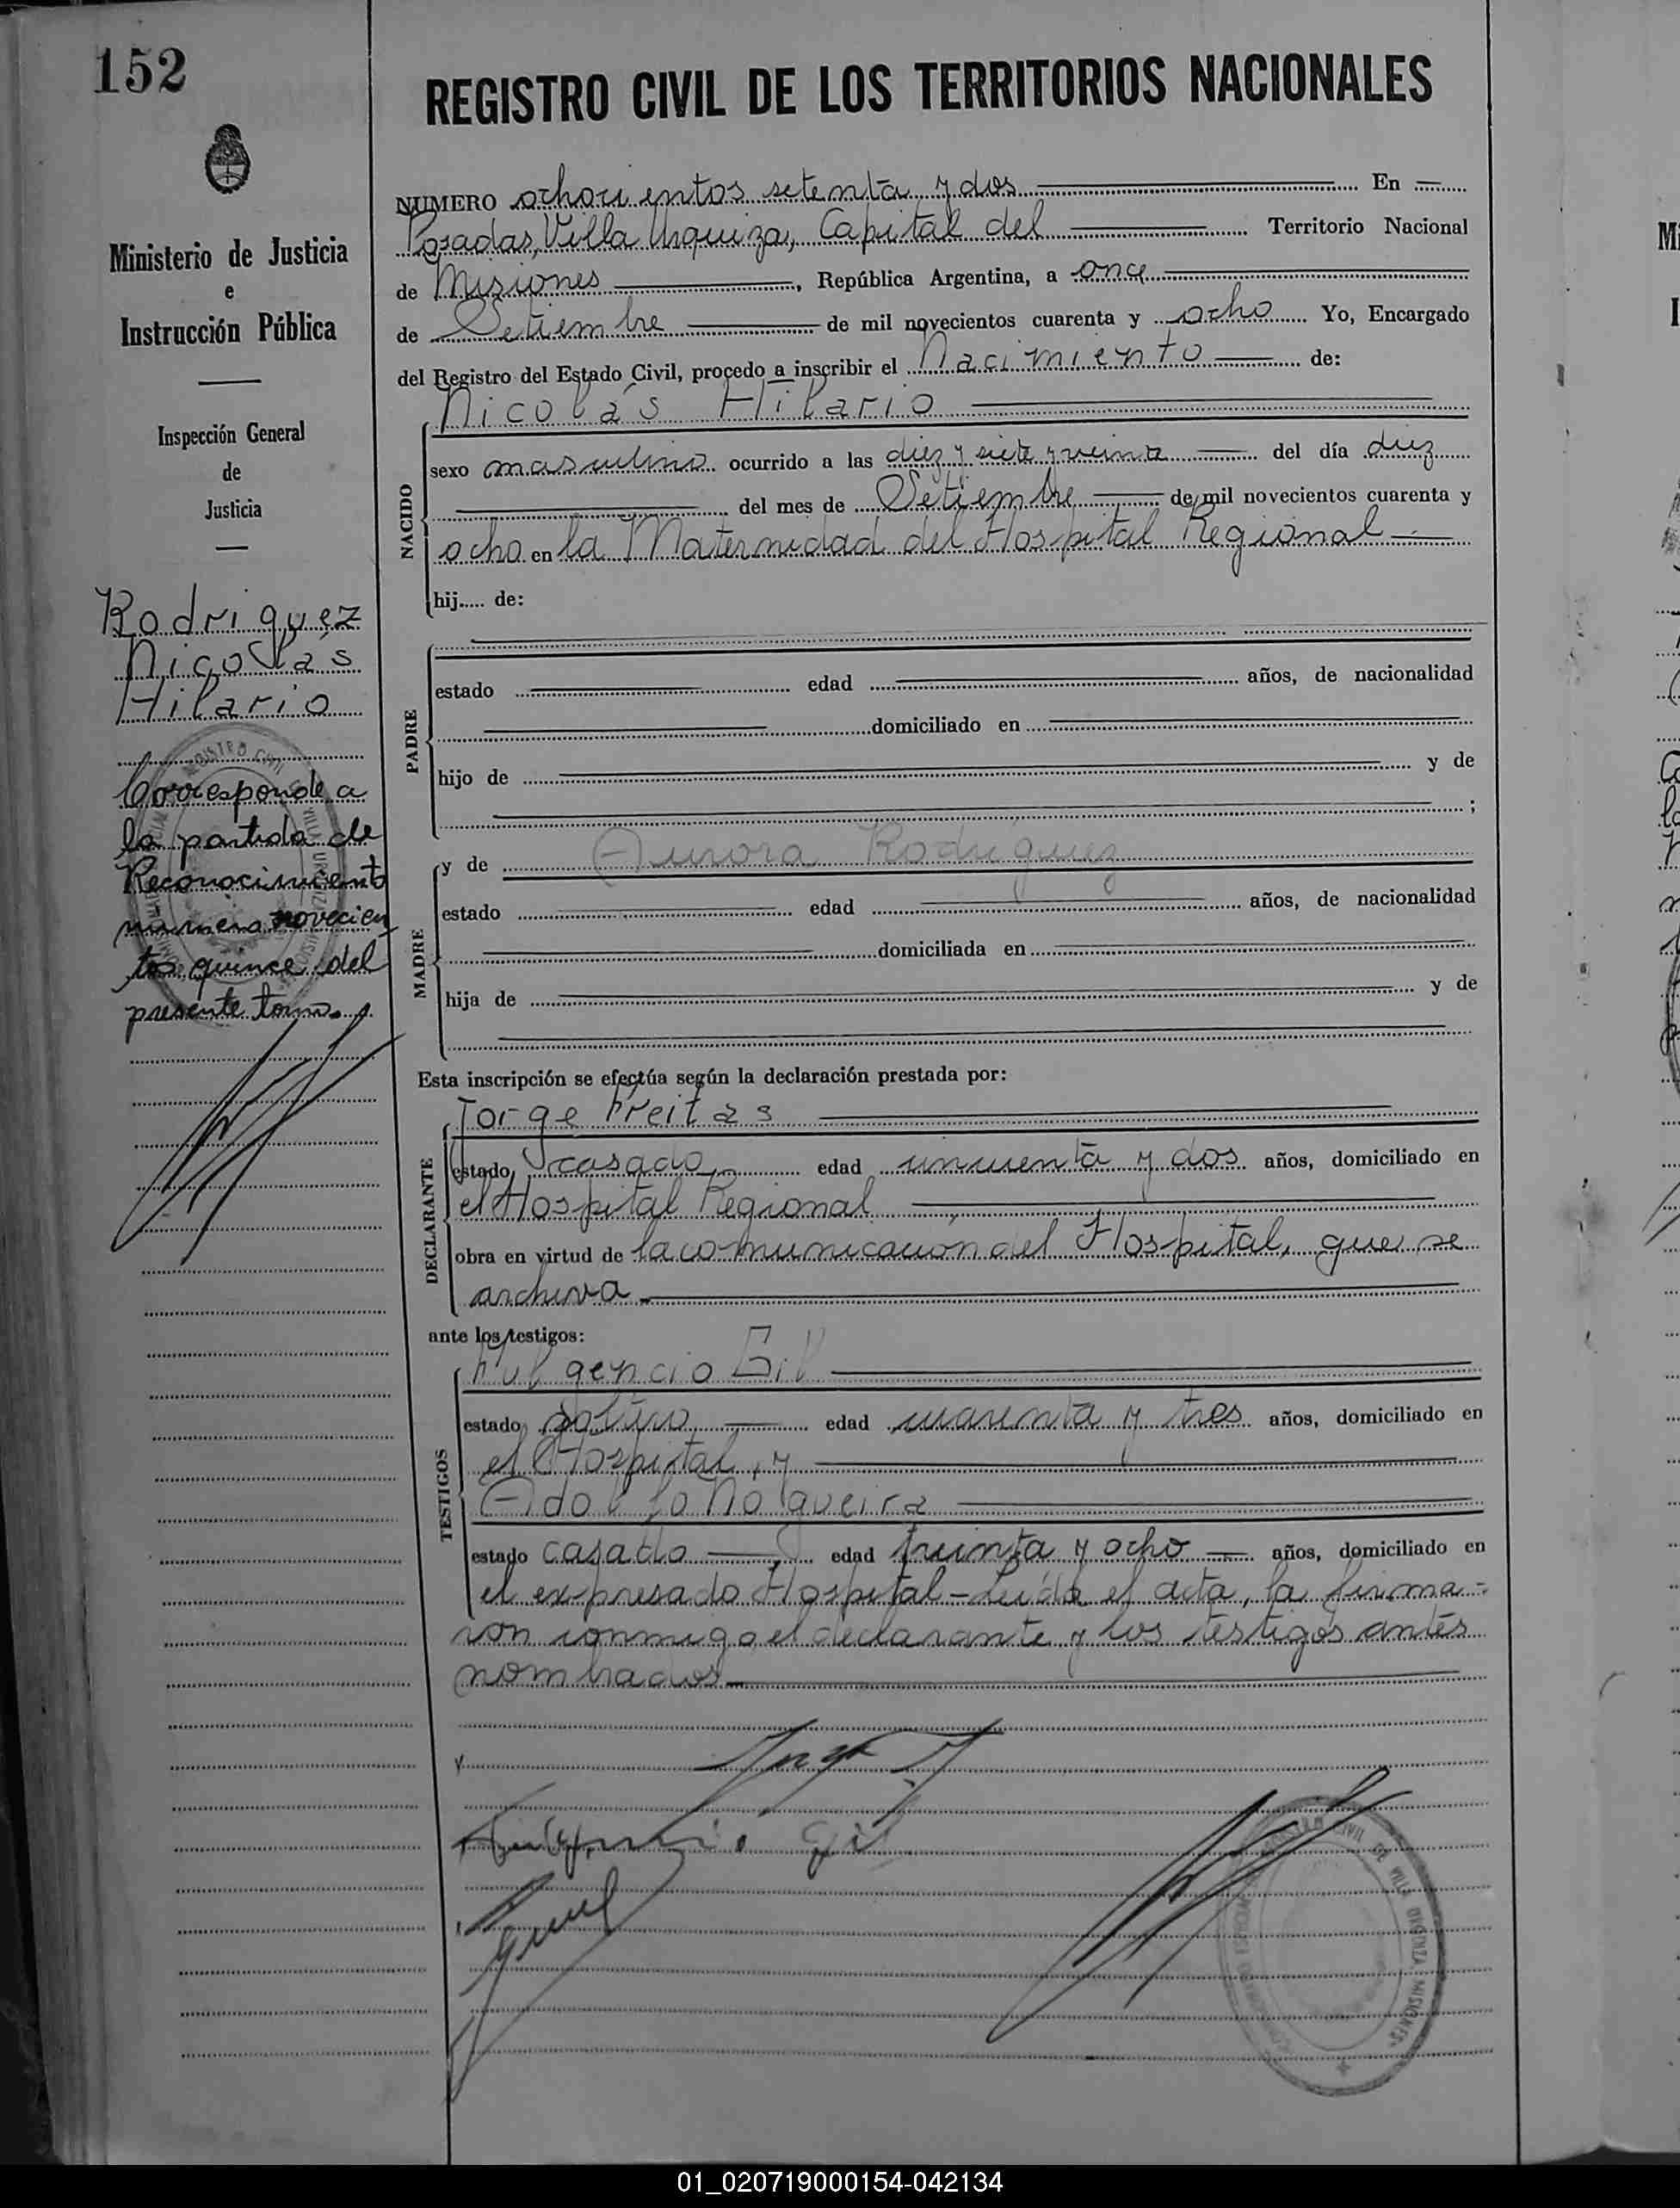 152
REGISTRO CIVIL DE LOS TERRITORIOS NACIONALES
Ministerio de Justicia
e
Instrucción Pública
Inspección General
de
Justicia
Rodriguez
Nicolás
Hilario
Corresponde a
la partida de
Reconocimiento
número novecien
tos quince del
presente tomo.
NUMERO ochocientos setenta y dos En
Posadas, Villa Urquiza, Capital del Territorio Nacional
de Misiones, República Argentina, a once
de Setiembre de mil novecientos cuarenta y ocho Yo, Encargado
del Registro del Estado Civil, procedo a inscribir el Nacimiento de:
Nicolás Hilario
NACIDO
sexo masculino ocurrido a las diez y siete y veinte del día diez
del mes de Setiembre de mil novecientos cuarenta y
ocho en la Maternidad del Hospital Regional
hij..... de:
PADRE
estado edad años, de nacionalidad
domiciliado en
hijo de y de
;
MADRE
y de Aurora Rodríguez
estado edad años, de nacionalidad
domiciliada en
hija de y de
Esta inscripción se efectúa según la declaración prestada por:
DECLARANTE
Jorge Freitas
estado casado edad cincuenta y dos años, domiciliado en
el Hospital Regional
obra en virtud de la comunicación del Hospital, que se
archiva
ante los testigos:
TESTIGOS
Fulgencio Gil
estado soltero edad cuarenta y tres años, domiciliado en
el Hospital, y
Adolfo Nolgueira
estado casado edad treinta y ocho años, domiciliado en
el expresado Hospital - Leída el acta, la firma-
ron conmigo el declarante y los testigos antes
nombrados
Gil
REGISTRO CIVIL DE VILLA URQUIZA, MISIONES
01_020719000154-042134